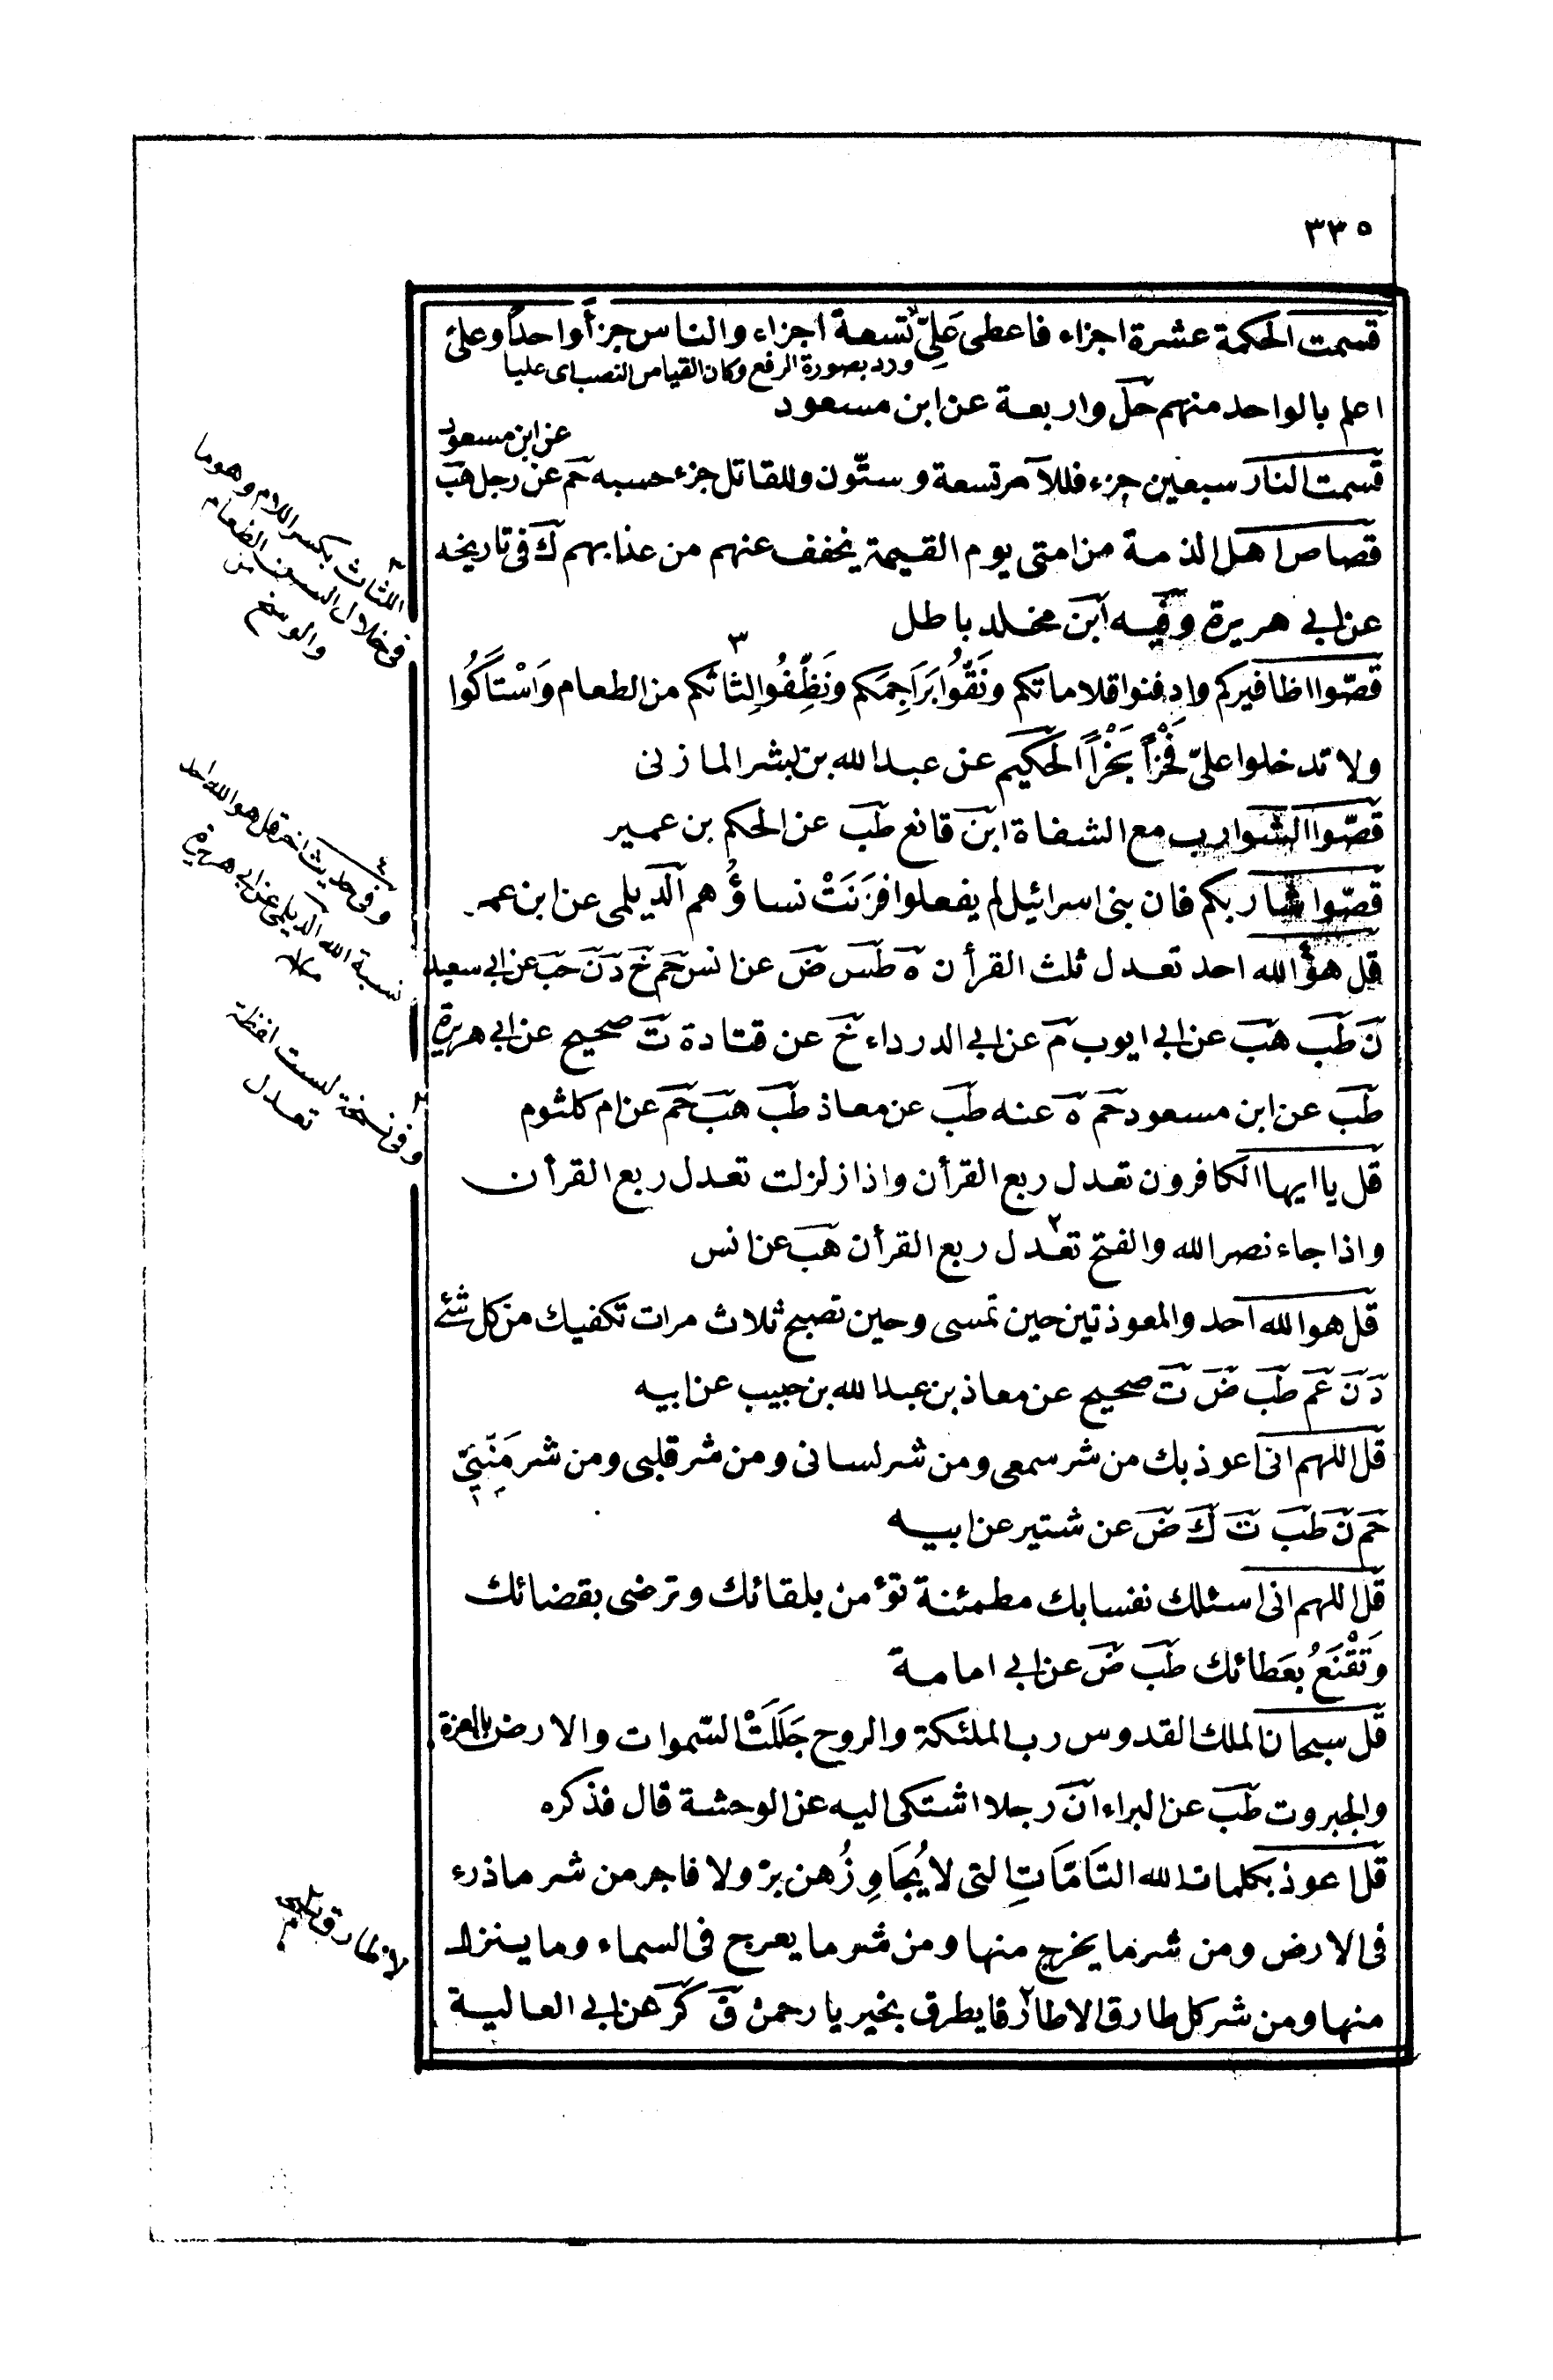 ٣٣٥
قسمت الحكمة عشرة اجزاء فاعطى عَلِىّ تسعة اجزاء والناس جزأ واحداً وعلىّ
ورد بصورة الرفع وكان القياس النصب اى عليا
اعلم بالواحد منهم حَل واربعة عن ابن مسعود
عن ابن مسعود
قسمت النار سبعين جزء فللآمر تسعة وستّون وللقاتل جزء حسبه حَم عن رجل هَب
قصاص اهل الذمة من امتى يوم القيمة يخفف عنهم من عذابهم ك فى تاريخه
عن ابى هريرة وفيه ابن مخلد باطل
قصّوا اظافيركم وادفنوا قلاماتكم ونَقُّوا بَرَاجِمَكم ونَظِّفُوا لِثاتكم من الطعام وَاسْتاكُوا
ولا تدخلوا علىّ فَخْزاً بَخْراً الحَكيم عن عبد الله بن بشر المازنى
قصّوا الشوارب مع الشفاة ابن قانع طَب عن الحكم بن عمير
قصّوا شاربكم فان بنى اسرائيل لم يفعلوا فزَنَتْ نساؤُهم الدّيلمى عن ابن عمر
قل هو الله احد تعدل ثلث القرأن ه طَس ضَ عن انس حَم خَ دَ نَ حَب عن ابى سعيد
نَ طَب هَب عن ابى ايوب مَ عن ابى الدرداء خَ عن قتادة تَ صحيح عن ابى هريرة
طَب عن ابن مسعود حَم هَ عنه طَب عن معاذ طَب هَب حَم عن ام كلثوم
قل يا ايها الكافرون تعدل ربع القرأن واذا زلزلت تعدل ربع القرأن
واذا جاء نصر الله والفتح تعدل ربع القرأن هَب عن انس
قل هو الله احد والمعوذتين حين تمسى وحين تصبح ثلاث مرات تكفيك من كل شئ
دَ نَ عَم طَب ضَ تَ صحيح عن معاذ بن عبد الله بن حبيب عن ابيه
قل اللهم انى اعوذ بك من شر سمعى ومن شر لسانى ومن شر قلبى ومن شر مَنِّيَّ
حَم نَ طَب تَ كَ ضَ عن شتير عن ابيه
قل اللهم انى اسئلك نفسا بك مطمئنة تؤمن بلقائك وترضى بقضائك
وَتَقْنَعُ بعَطائك طَب ضَ عن ابى امامة
قل سبحان الملك القدوس رب الملئكة والروح جَلَلَتْ السّموات والارض بالعزة
والجبروت طَب عن البراء انّ رجلا اشتكى اليه عن الوحشة قال فذكره
قل اعوذ بكلمات الله التَامّاتِ التى لا يُجَاوِزُهن برّ ولا فاجر من شر ما ذرء
فى الارض ومن شر ما يخرج منها ومن شر ما يعرج فى السماء وما ينزل
منها ومن شر كل طارق الا طارقا يطرق بخير يا رحمن قَ كَرَ عن ابى العالية
اللثات بكسر اللام وهو ما
فى خلال السن الطعام
والوسخ
وفى حديث اخر قل هو الله احد
نسبة الله الديلمى عن ابى هريرة
وفى نسخة ليست لفظة
تعدل